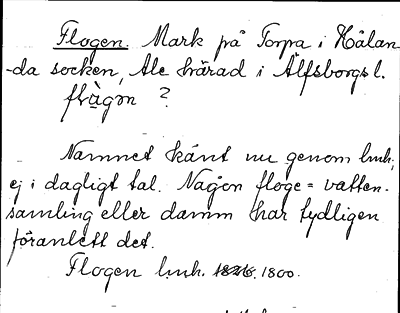 Flogen. Mark på Torpa i Hålan-
-da socken, Ale härad i Älfsborgs l.
flågon ?
Namnet känt nu genom lmh.,
ej i dagligt tal. Någon floge = vatten-
samling eller damm har tydligen
föranlett det.
Flogen lmh. 1800.